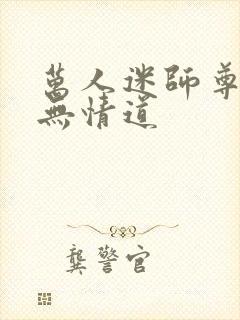 萬人迷師尊
無情道
龔警官